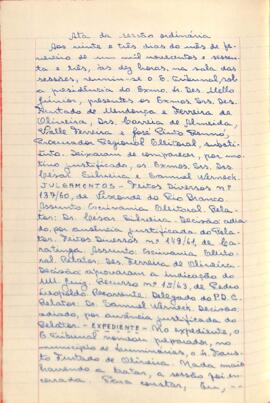 Ata da sessão ordinária
Aos vinte e três dias do mês de ja-
neiro de um mil novecentos e sessen-
ta e três, às dez horas, na sala das
sessões, reuniu-se o E. Tribunal, sob
a presidência do Exmo. Sr. Des. Mello
Júnior, presentes os Exmos. Srs. Des.
Furtado de Mendonça e Ferreira de
Oliveira, Drs. Corrêa de Almeida,
Valle Ferreira e José Pinto Renno,
Procurador Regional Eleitoral, substi-
tuto. Deixaram de comparecer, por mo-
tivo justificado, os Exmos. Srs. Drs.
Cesar Silveira e Samuel Werneck.
JULGAMENTOS - Feitos Diversos nº
137/60, de Visconde do Rio Branco.
Assunto: Escrivania Eleitoral. Rela-
tor: Dr. Cesar Silveira. Decisão: adia-
do, por ausência justificada do Rela-
tor. Feitos Diversos nº 149/61, de Ca-
ratinga. Assunto: Escrivania Eleito-
ral. Relator: Des. Ferreira de Oliveira.
Decisão: aprovaram a indicação do
MM. Juiz. Recurso nº 15/63, de Pedro
Leopoldo. Recorrente: Delegado do P.D.C.
Relator: Dr. Samuel Werneck. Decisão:
adiado, por ausência justificada do
Relator. - EXPEDIENTE - No expediente, o
E. Tribunal nomeou preparador, no
município de, o Sr.
Furtado de Oliveira. Nada mais
havendo a tratar, a sessão foi en-
cerrada. Para constar, eu,